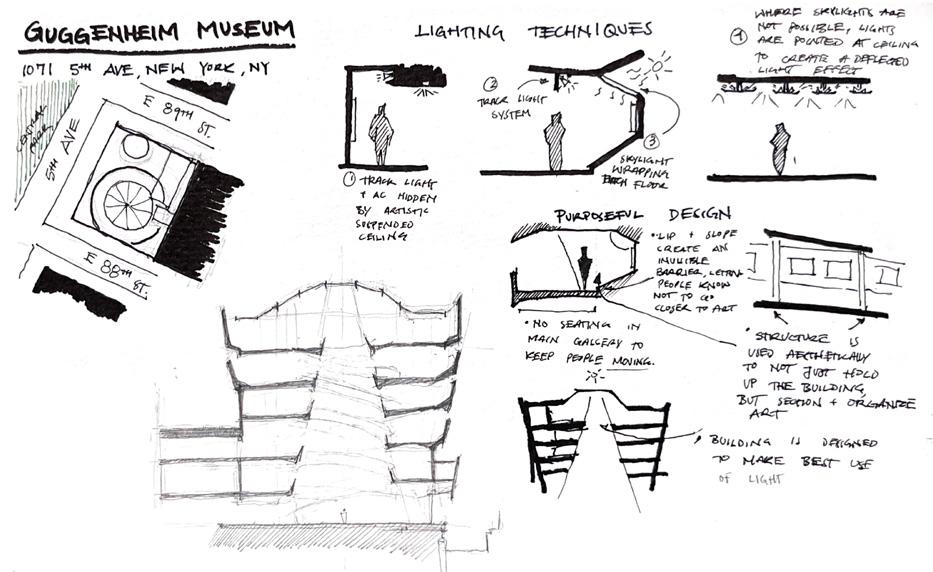 GUGGENHEIM MUSEUM
1071 5TH AVE, NEW YORK, NY
E 89TH ST.
CENTRAL PARK
5TH AVE
E 88TH ST.
LIGHTING TECHNIQUES
① TRACK LIGHT
+ AC HIDDEN
BY ARTISTIC
SUSPENDED
CEILING
②
TRACK LIGHT
SYSTEM
③
SKYLIGHT
WRAPPING
EACH FLOOR
④
WHERE SKYLIGHTS ARE
NOT POSSIBLE, LIGHTS
ARE POINTED AT CEILING
TO CREATE A DEFLECTED
LIGHT EFFECT
PURPOSEFUL DESIGN
• LIP + SLOPE
CREATE AN
INVISIBLE
BARRIER, LETTING
PEOPLE KNOW
NOT TO GO
CLOSER TO ART
• NO SEATING IN
MAIN GALLERY TO
KEEP PEOPLE MOVING.
• STRUCTURE IS
USED AESTHETICALLY
TO NOT JUST HOLD
UP THE BUILDING,
BUT SECTION + ORGANIZE
ART
• BUILDING IS DESIGNED
TO MAKE BEST USE
OF LIGHT